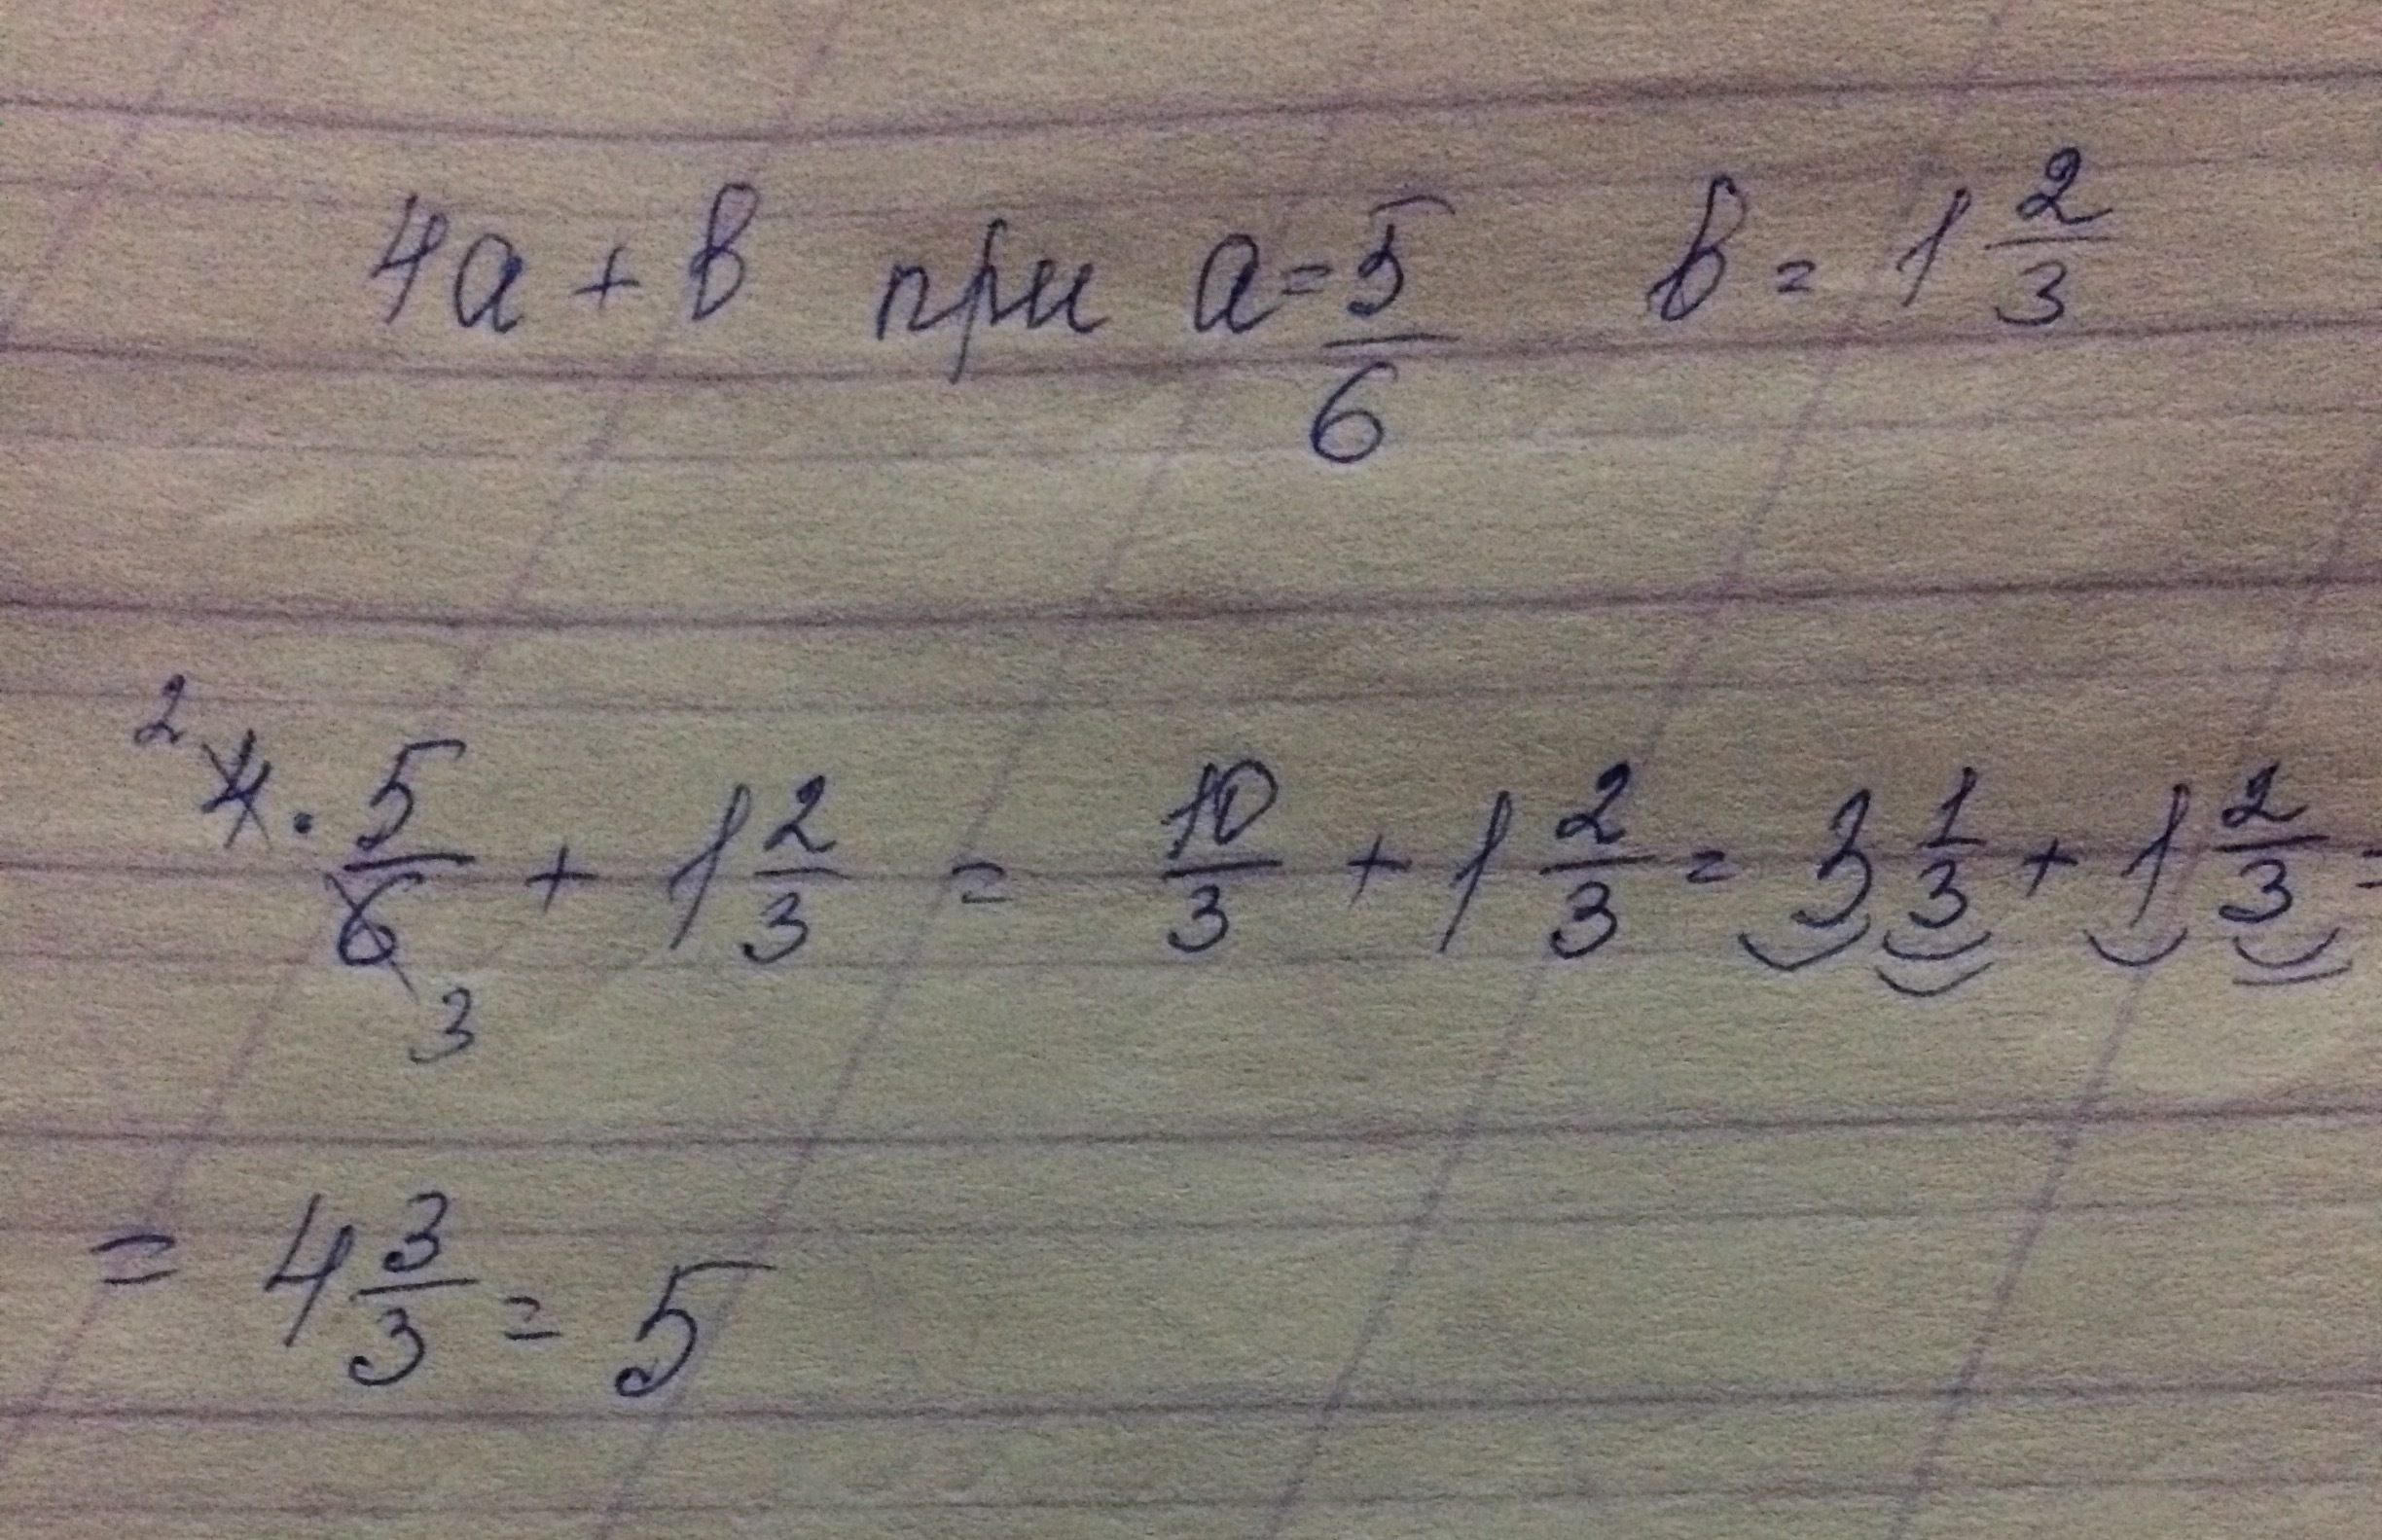 4a + b при a = 5/6 b = 1 2/3
2 4 · 5/6 3 + 1 2/3 = 10/3 + 1 2/3 = 3 1/3 + 1 2/3 =
= 4 3/3 = 5